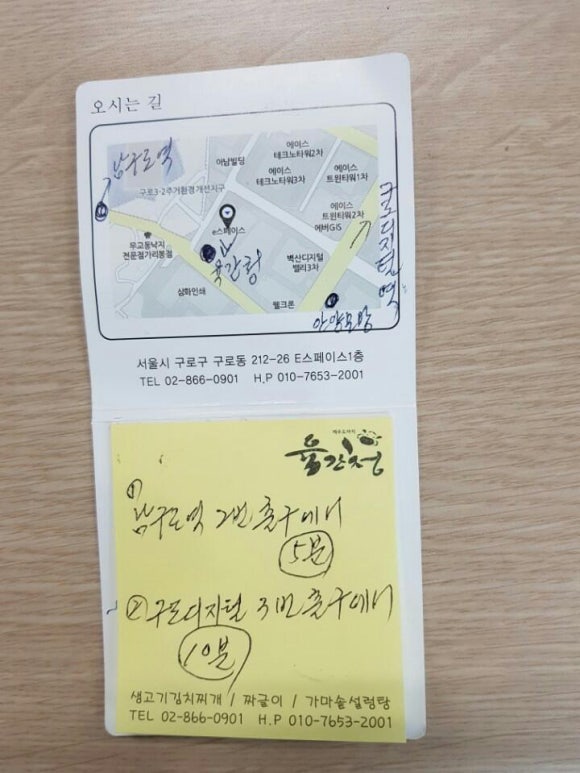 오시는 길
남구로역
아남빌딩
에이스
테크노타워2차
에이스
테크노타워3차
에이스
트윈타워1차
구로3-2주거환경개선지구
에이스
트윈타워2차
에버GIS
구로디지털역
e스페이스
육간청
우교동낙지
전문점가리봉점
벽산디지털
밸리3차
삼화인쇄
웰크론
서울시 구로구 구로동 212-26 E스페이스1층
TEL 02-866-0901 H.P 010-7653-2001
육간청
① 남구로역 2번 출구에서
5분
② 구로디지털 3번 출구에서
10분
생고기김치찌개 / 짜글이 / 가마솥설렁탕
TEL 02-866-0901 H.P 010-7653-2001